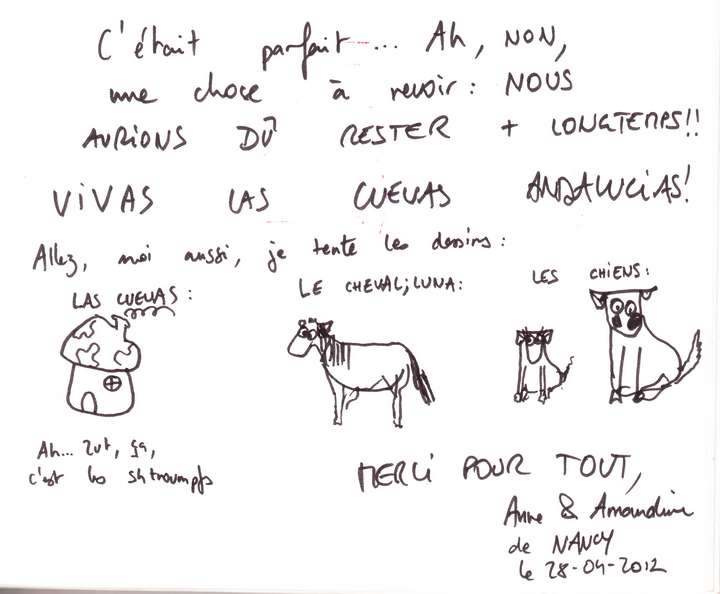 C'était parfait... Ah, NON,
une chose à revoir : NOUS
AURIONS DÛ RESTER + LONGTEMPS!!
VIVAS LAS CUEVAS ANDALUCIAS!
Allez, moi aussi, je tente les dessins :
LAS CUEVAS :
LE CHEVAL; LUNA :
LES CHIENS :
Ah... zut, ça,
c'est les shtroumpfs
MERCI POUR TOUT,
Anne & Amandine
de NANCY
le 28-04-2012